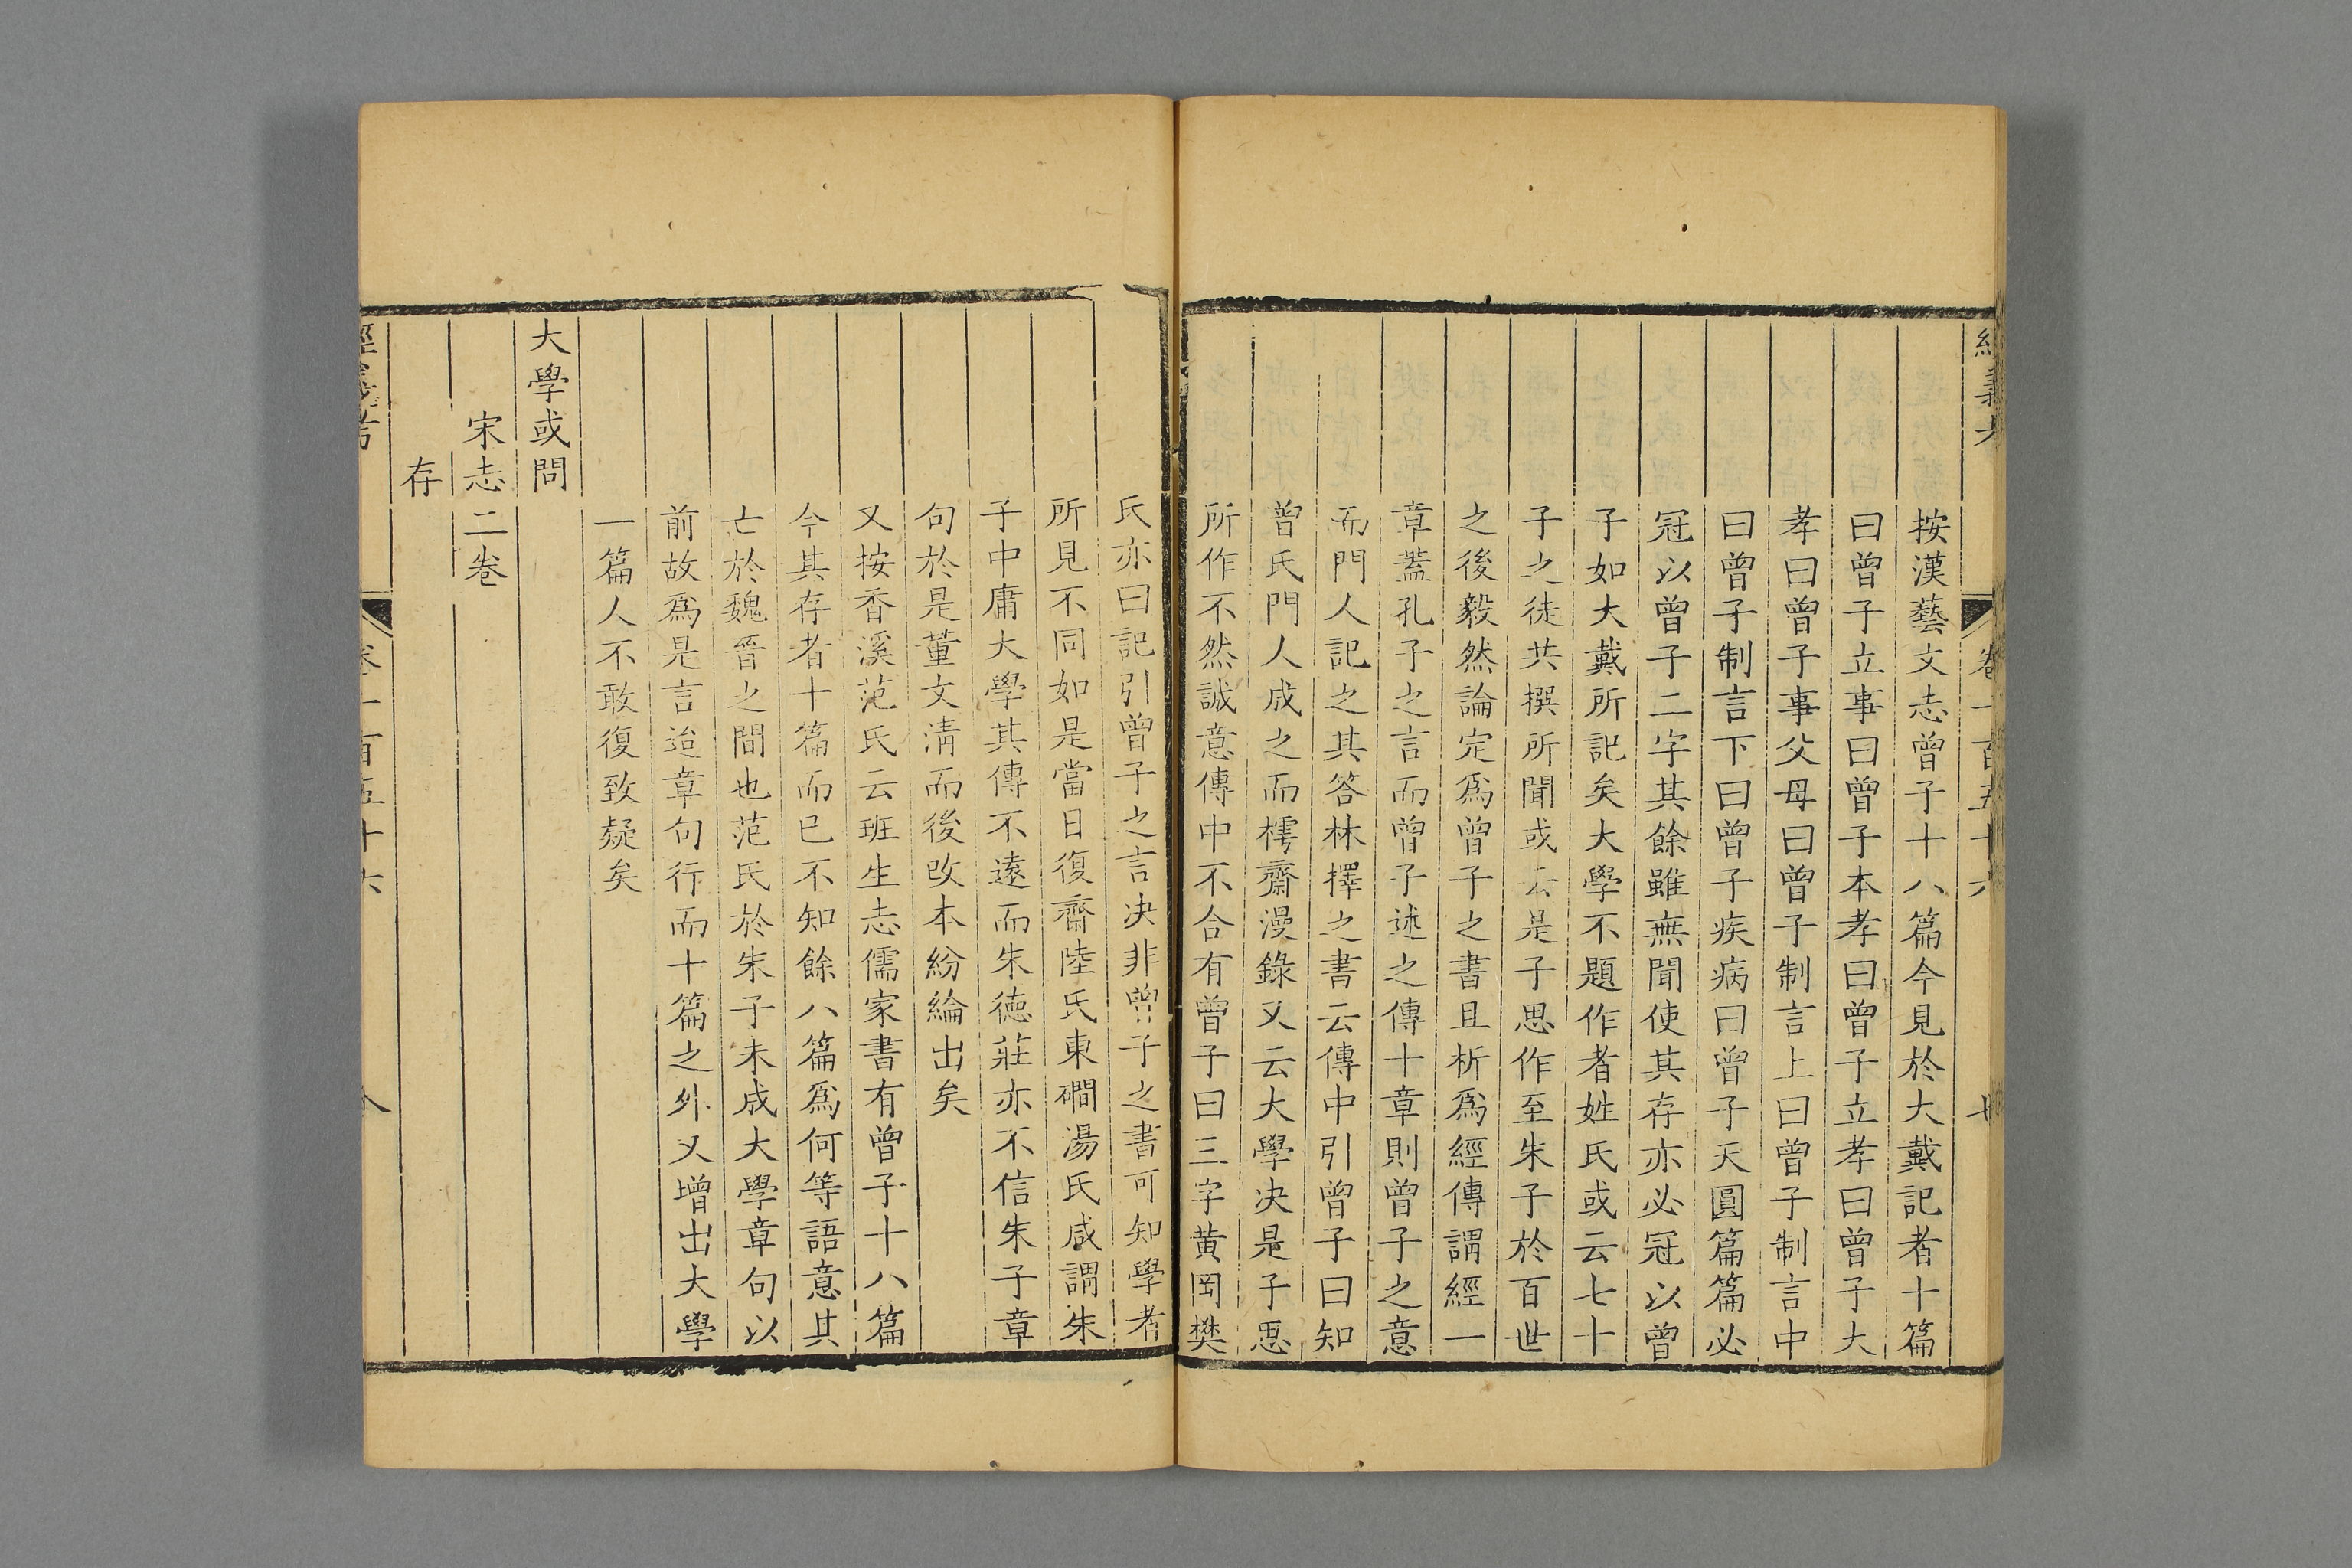 經義考 卷一百五十六
按漢藝文志曾子十八篇今見於大戴記者十篇
曰曾子立事曰曾子本孝曰曾子立孝曰曾子大
孝曰曾子事父母曰曾子制言上曰曾子制言中
曰曾子制言下曰曾子疾病曰曾子天圓篇篇必
冠以曾子二字其餘雖無聞使其存亦必冠以曾
子如大戴所記矣大學不題作者姓氏或云七十
子之徒共撰所聞或云是子思作至朱子於百世
之後毅然論定爲曾子之書且析爲經傳謂經一
章蓋孔子之言而曾子述之傳十章則曾子之意
而門人記之其答林擇之書云傳中引曾子曰知
曾氏門人成之而樗齋漫錄又云大學决是子思
所作不然誠意傳中不合有曾子曰三字黄岡樊
氏亦曰記引曾子之言决非曾子之書可知學者
所見不同如是當日復齋陸氏東磵湯氏咸謂朱
子中庸大學其傳不遠而朱德莊亦不信朱子章
句於是董文清而後改本紛綸出矣
又按香溪范氏云班生志儒家書有曾子十八篇
今其存者十篇而已不知餘八篇爲何等語意其
亡於魏晉之間也范氏於朱子未成大學章句以
前故爲是言迨章句行而十篇之外又增出大學
一篇人不敢復致疑矣
大學或問
宋志二卷
存
經義考 卷一百五十六